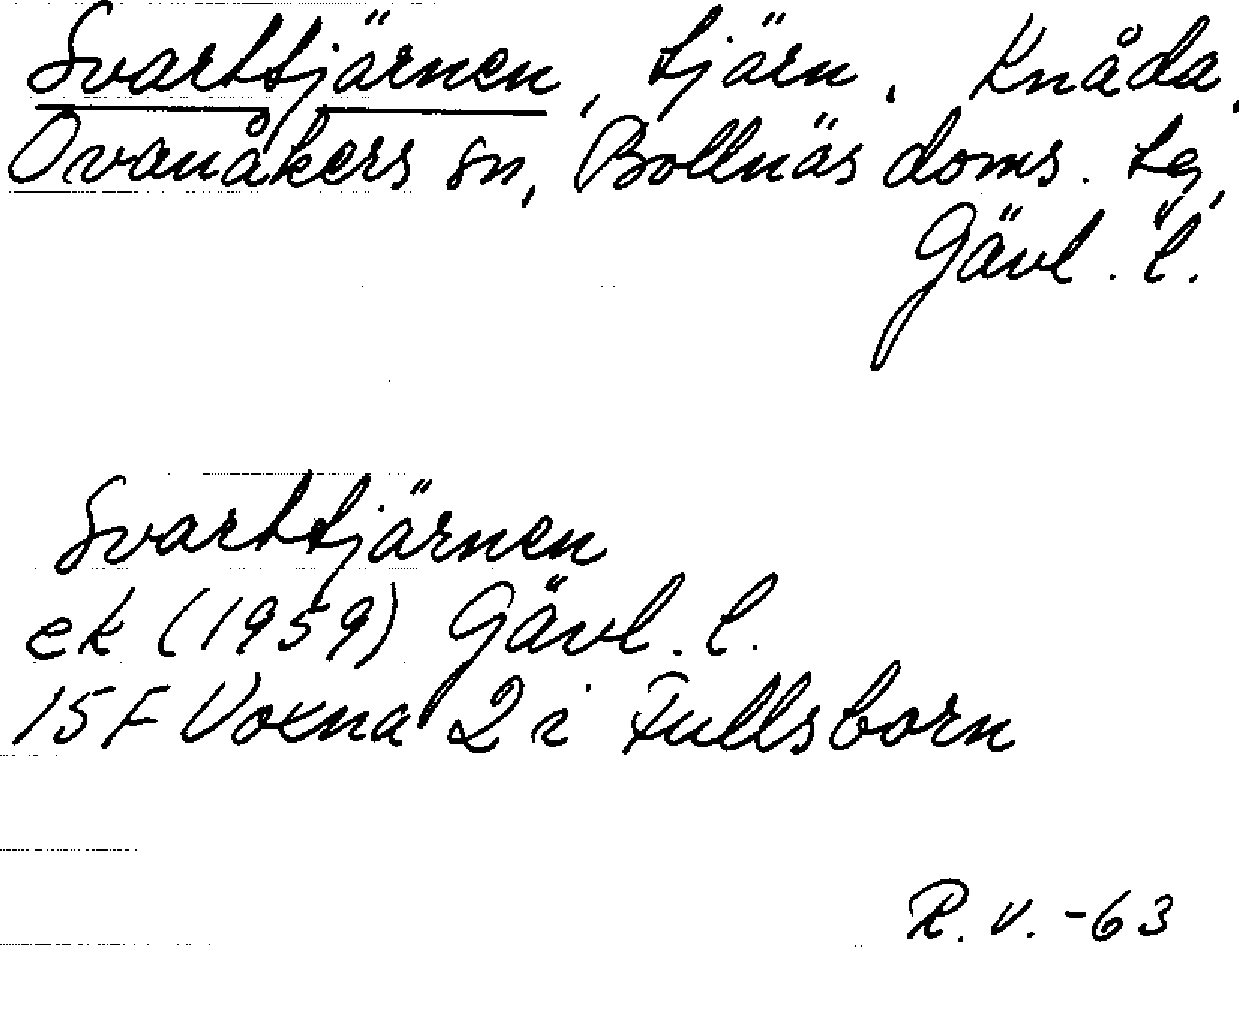 Svarttjärnen, tjärn. Knåda,
Ovanåkers sn, Bollnäs doms. tg,
Gävl. l.
Svarttjärnen
ek (1959) Gävl. l.
15F Voxna 2 i Fullsborn
R. V. -63